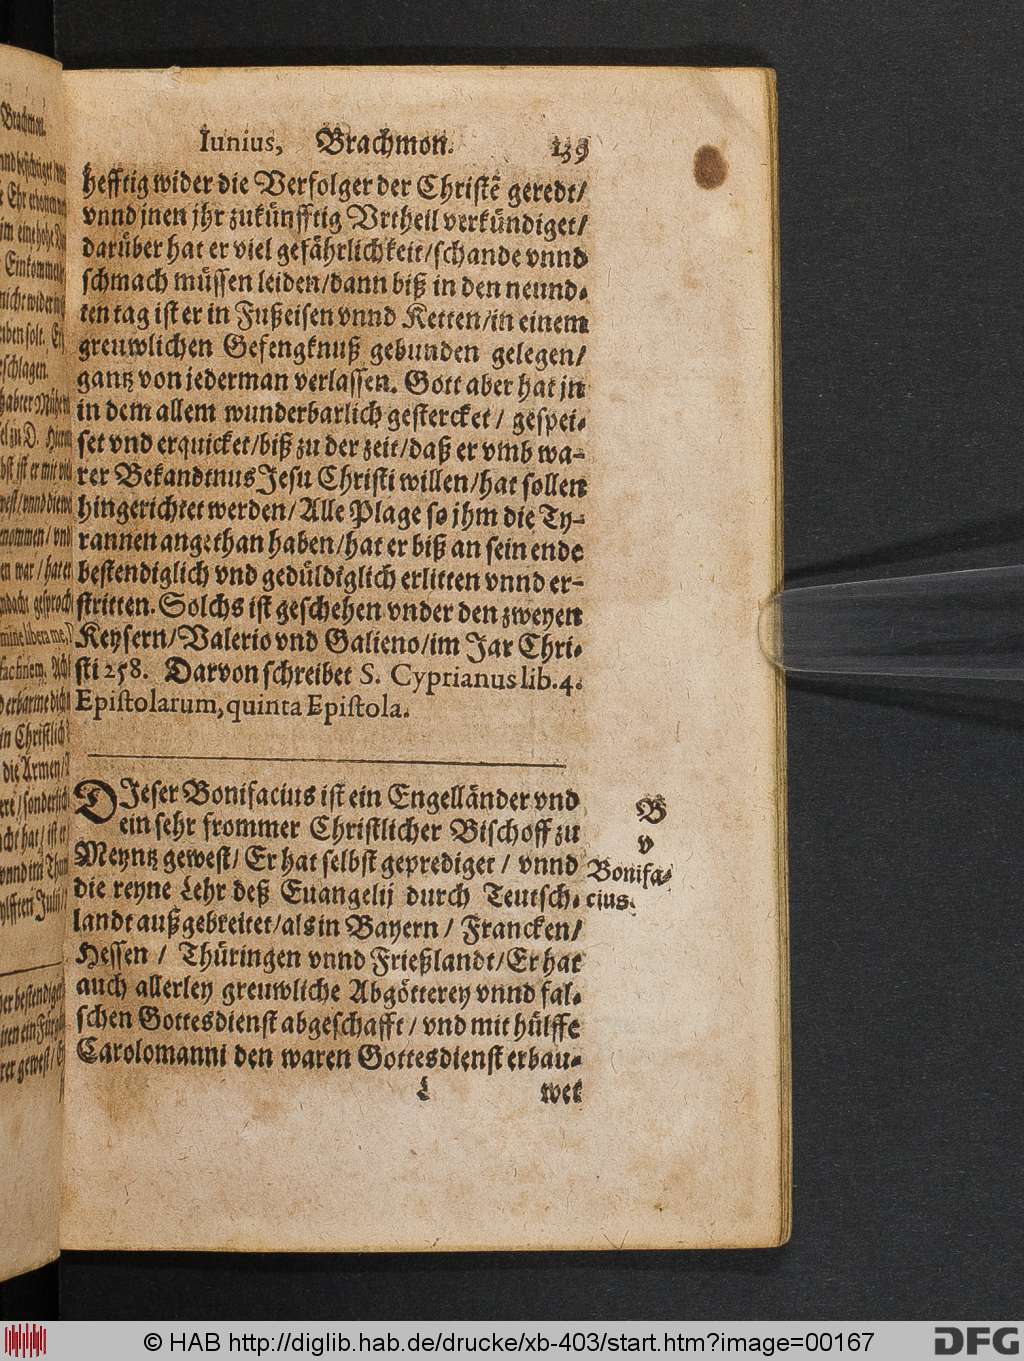 Iunius, Brachmon. 139
hefftig wider die Verfolger der Christẽ geredt/
vnnd jnen jhr zukünfftig Vrtheil verkündiget/
darüber hat er viel gefährlichkeit/schande vnnd
schmach müssen leiden/dann biß in den neund-
ten tag ist er in Fußeisen vnnd Ketten/in einem
greuwlichen Gefengknuß gebunden gelegen/
gantz von jederman verlassen. Gott aber hat jn
in dem allem wunderbarlich gestercket/ gespei-
set vnd erquicket/biß zu der zeit/daß er vmb wa-
rer Bekandtnus Jesu Christi willen/hat sollen
hingerichtet werden/Alle Plage so jhm die Ty-
rannen angethan haben/hat er biß an sein ende
bestendiglich vnd gedüldiglich erlitten vnnd er-
stritten. Solchs ist geschehen vnder den zweyen
Keysern/Valerio vnd Galieno/im Jar Chri-
sti 258. Darvon schreibet S. Cyprianus lib. 4.
Epistolarum, quinta Epistola.
DIeser Bonifacius ist ein Engelländer vnd
ein sehr frommer Christlicher Bischoff zu
Meyntz gewest/ Er hat selbst geprediget/ vnnd
die reyne Lehr deß Euangelij durch Teutsch-
landt außgebreitet/als in Bayern/ Francken/
Hessen/ Thüringen vnnd Frießlandt/Er hat
auch allerley greuwliche Abgötterey vnnd fal-
schen Gottesdienst abgeschafft/ vnd mit hülffe
Carolomanni den waren Gottesdienst erbau-
L wet
B
v
Bonifa-
cius.
Brachmon.
eschlagen.
in Christlich
© HAB http://diglib.hab.de/drucke/xb-403/start.htm?image=00167
DFG